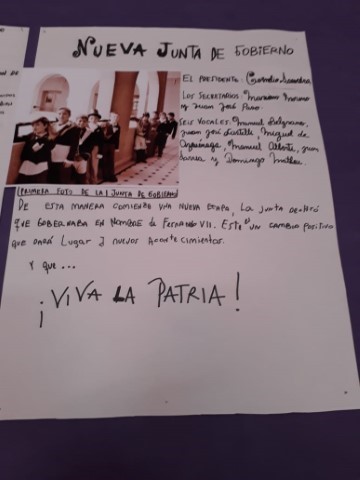 NUEVA JUNTA DE GOBIERNO
EL PRESIDENTE: Cornelio Saavedra
LOS SECRETARIOS: Mariano Moreno
y Juan José Paso.
SEIS VOCALES: Manuel Belgrano,
Juan José Castelli, Miguel de
Azcuénaga, Manuel Alberti, Juan
Larrea y Domingo Matheu.
(PRIMERA FOTO DE LA I JUNTA DE GOBIERNO)
DE ESTA MANERA COMIENZA UNA NUEVA ETAPA, LA JUNTA declaró
QUE GOBERNABA EN NOMBRE de FERNANDO VII. Este es UN CAMBIO POSITIVO
que DARÁ LUGAR A NUEVOS Acontecimientos.
Y que ...
¡VIVA LA PATRIA!